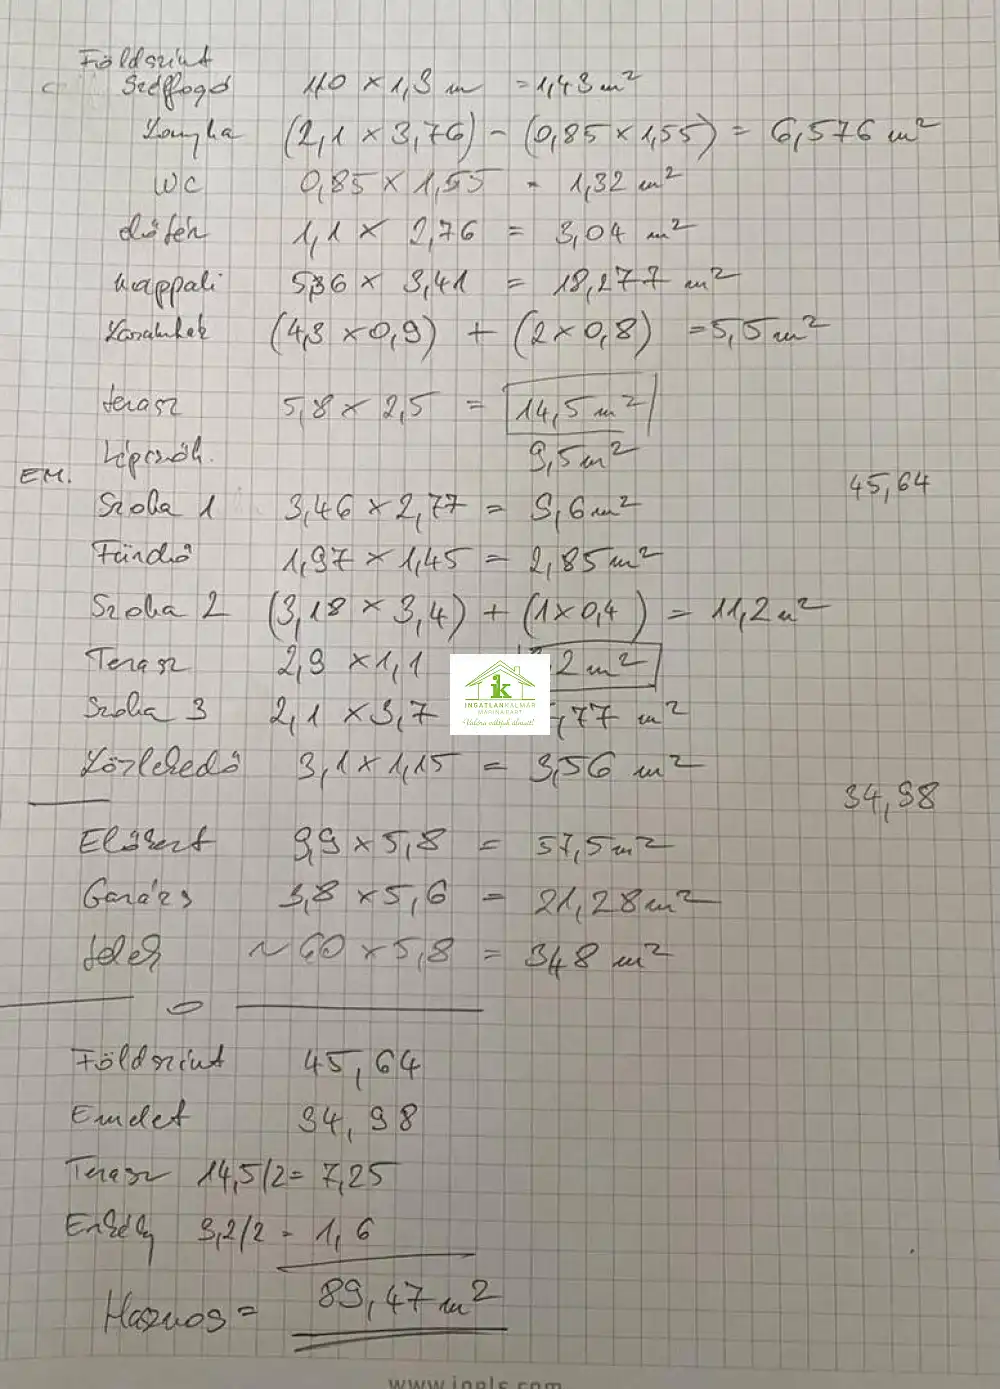 Földszint
Szélfogó 1,10 × 1,3 m = 1,43 m²
Konyha (2,1 × 3,76) - (0,85 × 1,55) = 6,576 m²
WC 0,85 × 1,55 = 1,32 m²
előtér 1,1 × 2,76 = 3,04 m²
nappali 5,36 × 3,41 = 18,277 m²
(4,3 × 0,9) + (2 × 0,8) = 5,5 m²
terasz 5,8 × 2,5 = 14,5 m²
Lépcsők. 9,5 m²
EM.
45,64
Szoba 1 3,46 × 2,77 = 9,6 m²
Fürdő 1,97 × 1,45 = 2,85 m²
Szoba 2 (3,18 × 3,4) + (1 × 0,4) = 11,2 m²
Terasz 2,9 × 1,1 2 m²
ik
INGATLANKALMÁR
MARINA PART
Szoba 3 2,1 × 3,7 ,77 m²
Közlekedő 3,1 × 1,15 = 3,56 m²
34,98
Előkert 9,9 × 5,8 = 57,5 m²
Garázs 3,8 × 5,6 = 21,28 m²
telek ~ 60 × 5,8 = 348 m²
Földszint 45,64
Emelet 34,98
Terasz 14,5/2 = 7,25
Erkély 3,2/2 = 1,6
Hasznos = 89,47 m²